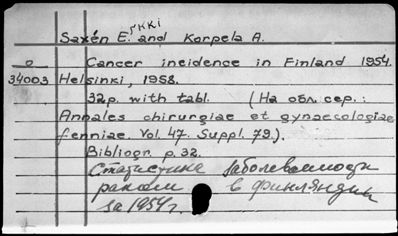 Saxén E. ЭККІ and Korpela A.
0 Cancer incidence in Finland 1954.
34003 Helsinki, 1958.
32p. with tabl. (На обл. сер.:
Annales chirurgiae et gynaecologiae
fenniae. Vol. 47. Suppl. 79.).
Bibliogr. p. 32.
Статистика заболеваемости
раком в Финляндии
за 1954г.